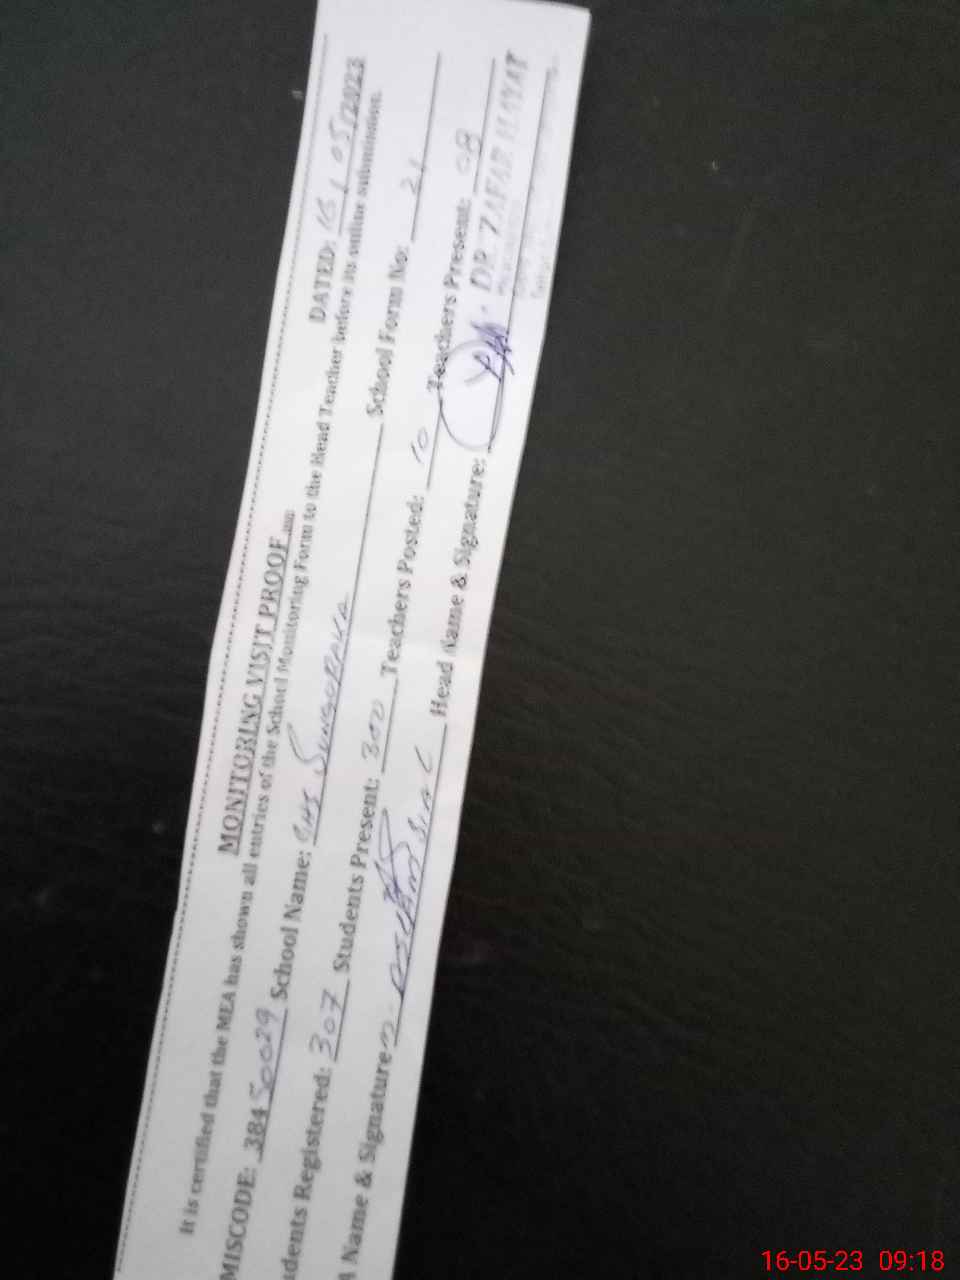 MONITORING VISIT PROOF DATED: 16/05/2023
It is certified that the MEA has shown all entries of the School Monitoring Form to the Head Teacher before its online submission.
MISCODE: 38450029 School Name: GHS School Form No: 21
dents Registered: 307 Students Present: 300 Teachers Posted: 10 Teachers Present: 08
Name & Signature Head Name & Signature: DR. ZAFAR HAYAT
16-05-23 09:18